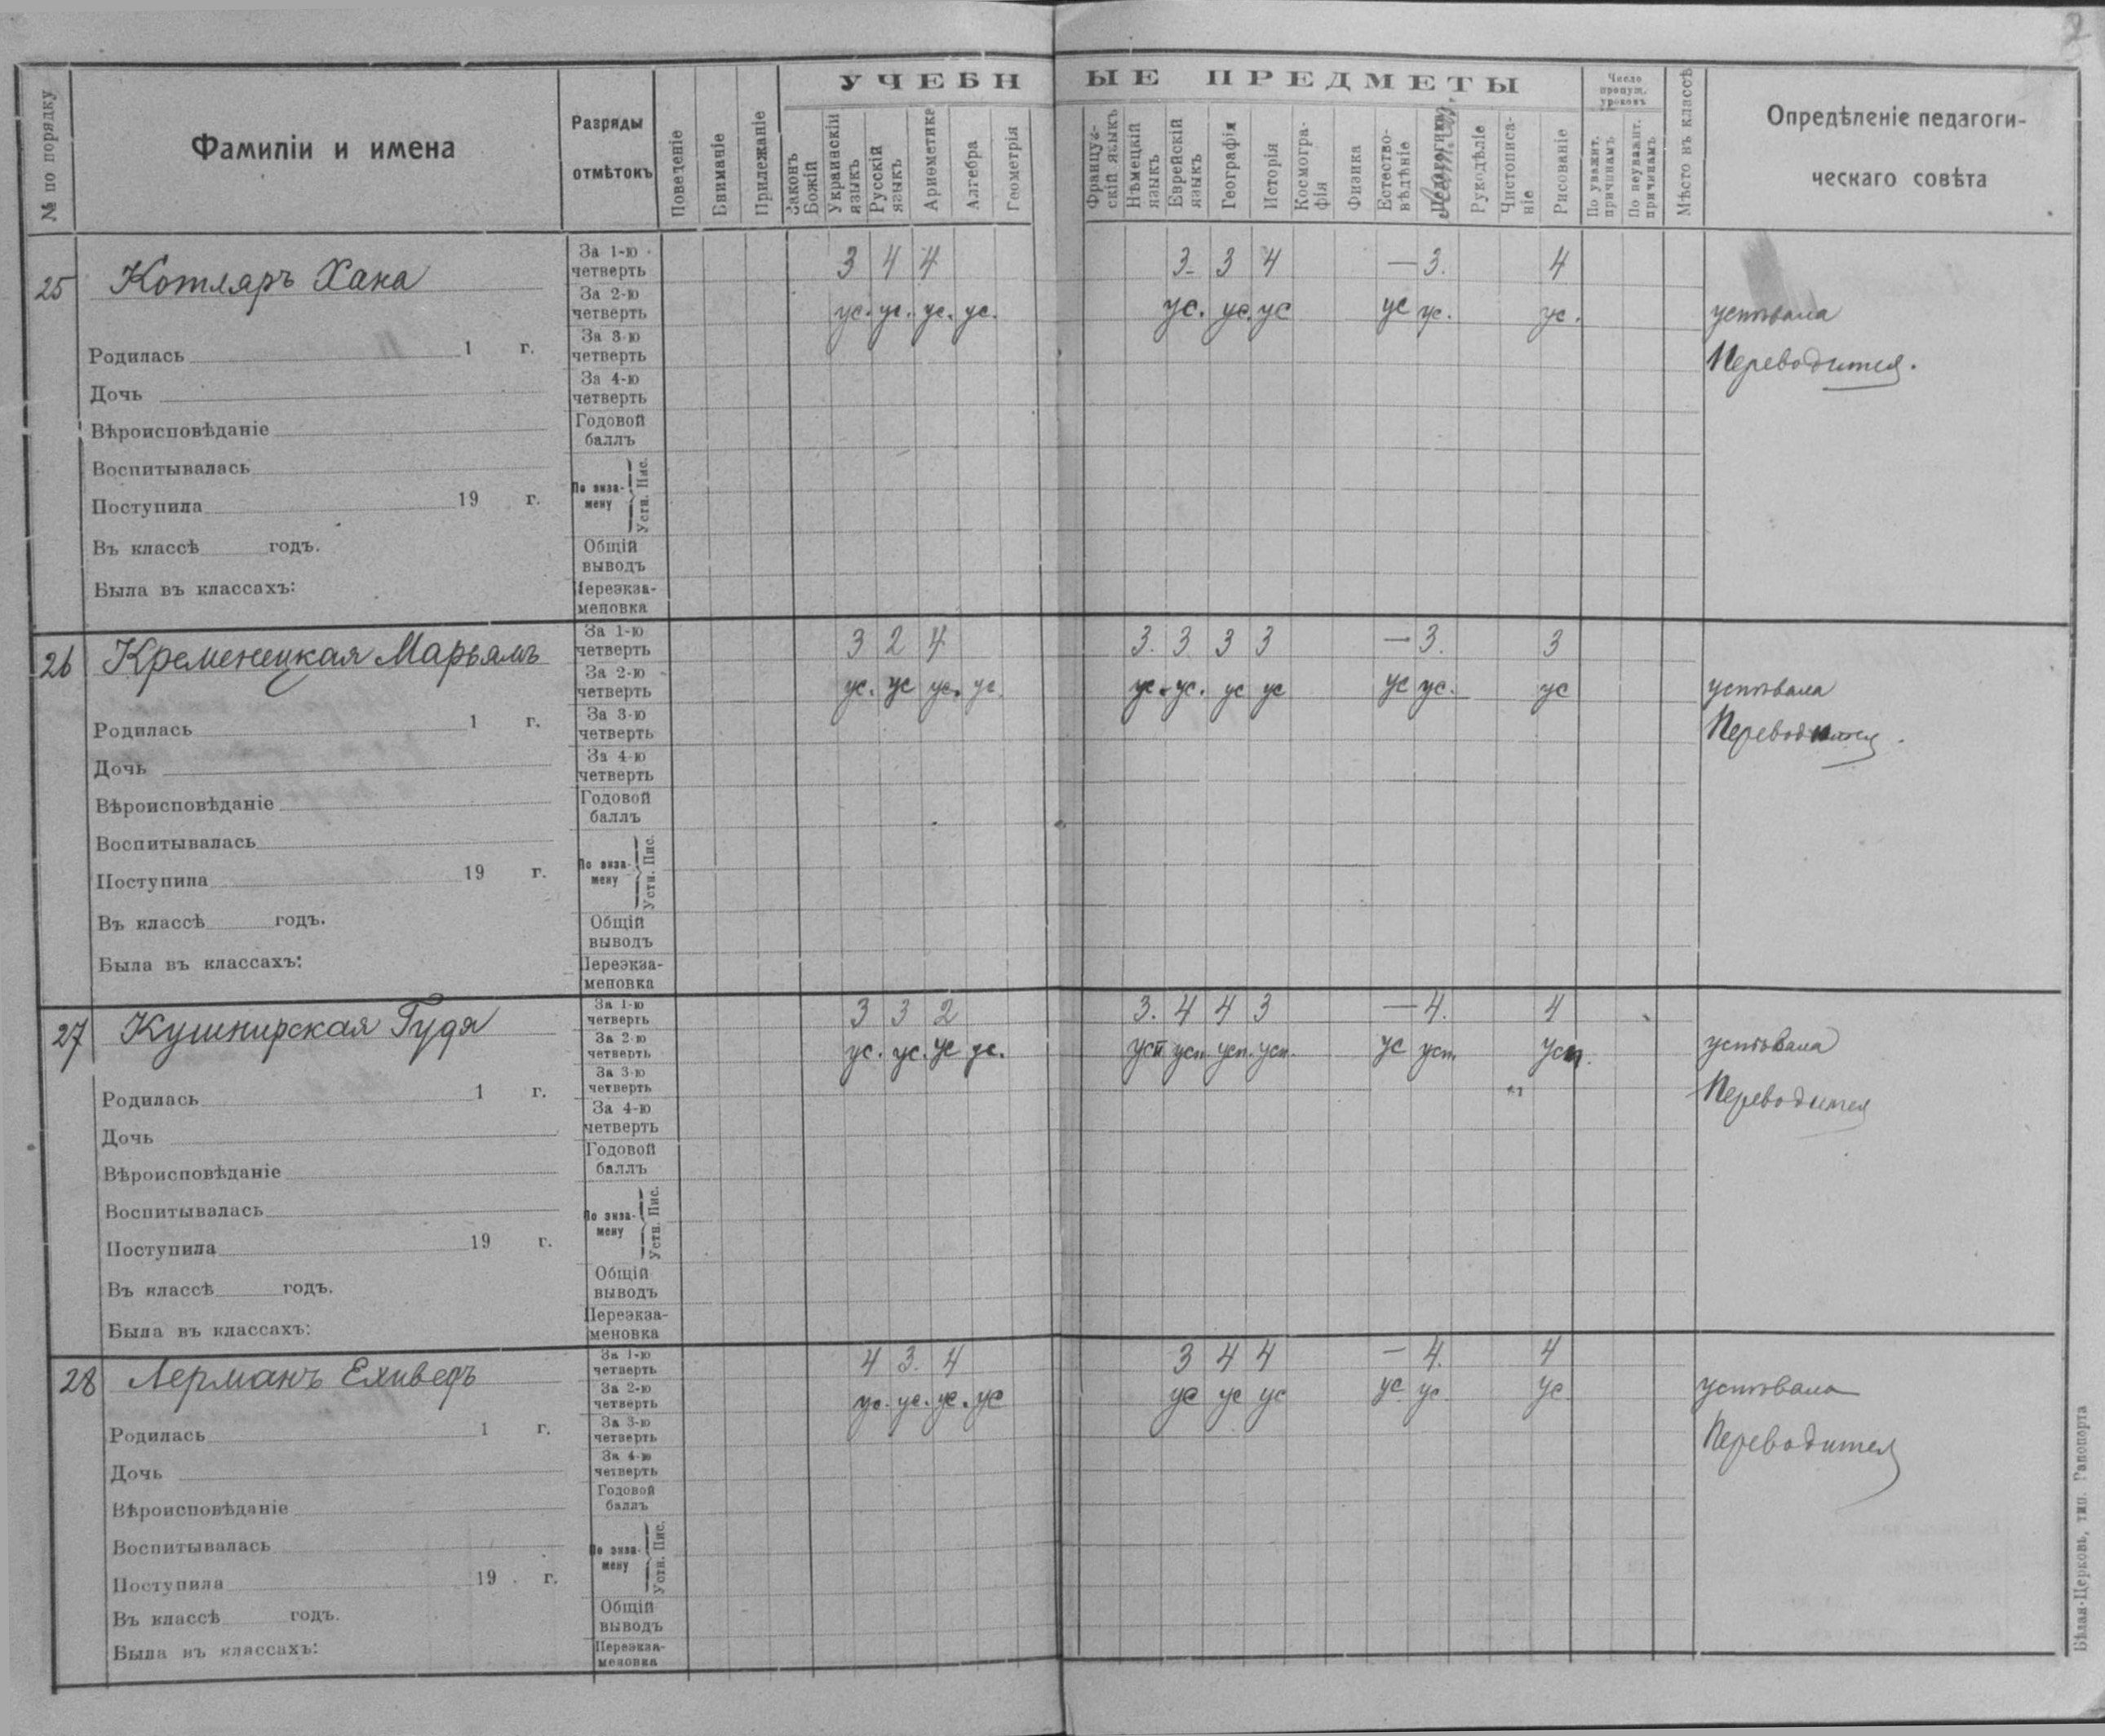 2
УЧЕБНЫЕ ПРЕДМЕТЫ
№ по порядку
Фамиліи и имена
Разряды отмѣтокъ
Поведеніе
Вниманіе
Прилежаніе
Законъ Божій
Украинскій языкъ
Русскій языкъ
Ариѳметика
Алгебра
Геометрія
Француз-скій языкъ
Нѣмецкій языкъ
Еврейскій языкъ
Географія
Исторія
Космогра-фія
Физика
Естество-вѣдѣніе
Педагогика
Рукодѣліе
Чистописа-ніе
Рисованіе
Число пропущ. уроковъ
По уважит. причинамъ
По неуважит. причинамъ
Мѣсто въ классѣ
Опредѣленіе педагоги-
ческаго совѣта
25 Котляръ Хана
За 1-ю четверть 3 4 4 3 3 4 — 3. 4
За 2-ю четверть ус. ус. ус. ус. ус. ус. ус ус ус. ус. успѣвала
Родилась 1 г. За 3-ю четверть Переводится.
Дочь За 4-ю четверть
Вѣроисповѣданіе Годовой баллъ
Воспитывалась
Поступила 19 г. По экза-мену Устн. Пис.
Въ классѣ годъ. Общій выводъ
Была въ классахъ: Переэкза-меновка
26 Кременецкая Марьямъ
За 1-ю четверть 3 2 4 3. 3 3 3 — 3. 3
За 2-ю четверть ус. ус ус. ус. ус. ус. ус ус ус ус. ус успѣвала
Родилась 1 г. За 3-ю четверть Переводится.
Дочь За 4-ю четверть
Вѣроисповѣданіе Годовой баллъ
Воспитывалась
Поступила 19 г. По экза-мену Устн. Пис.
Въ классѣ годъ. Общій выводъ
Была въ классахъ: Переэкза-меновка
27 Кушнирская Гудя
За 1-ю четверть 3 3 2 3. 4 4 3 — 4. 4
За 2-ю четверть ус. ус. ус ус. усп усп. усп. усп. ус усп. усп. успѣвала
Родилась 1 г. За 3-ю четверть Переводится
Дочь За 4-ю четверть
Вѣроисповѣданіе Годовой баллъ
Воспитывалась
Поступила 19 г. По экза-мену Устн. Пис.
Въ классѣ годъ. Общій выводъ
Была въ классахъ: Переэкза-меновка
28 Лерманъ Ехиведъ
За 1-ю четверть 4 3. 4 3 4 4 — 4. 4
За 2-ю четверть ус. ус. ус. ус ус ус ус ус ус. ус. успѣвала
Родилась 1 г. За 3-ю четверть Переводится
Дочь За 4-ю четверть
Вѣроисповѣданіе Годовой баллъ
Воспитывалась
Поступила 19 г. По экза-мену Устн. Пис.
Въ классѣ годъ. Общій выводъ
Была въ классахъ: Переэкза-меновка
Бѣлая-Церковь, тип. Рапопорта